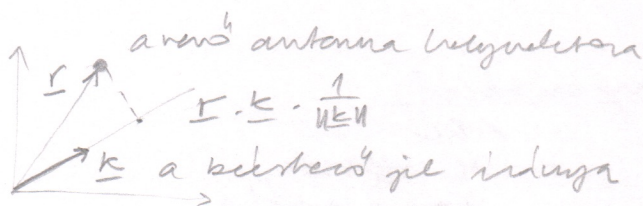 a vevő antenna helyvektora
r
r · k · 1/‖k‖
k a beérkező jel iránya